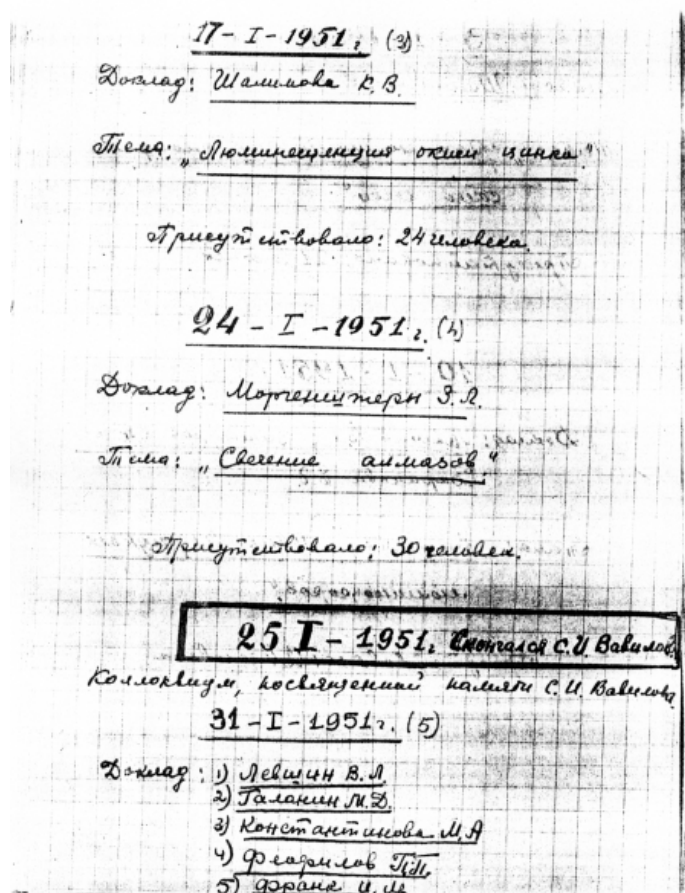 17 - I - 1951 г. (3)
Доклад: Шалимова К.В.
Тема: „Люминесценция окиси цинка"
Присутствовало: 24 человека.
24 - I - 1951 г. (4)
Доклад: Моргенштерн З.Л.
Тема: „Свечение алмазов"
Присутствовало: 30 человек.
25 I - 1951 г. Скончался С.И. Вавилов
Коллоквиум, посвященный памяти С.И. Вавилова
31 - I - 1951 г. (5)
Доклад: 1) Левшин В.Л.
2) Галанин М.Д.
3) Константинова М.А
4) Феофилов П.П.
5) Франк И.М